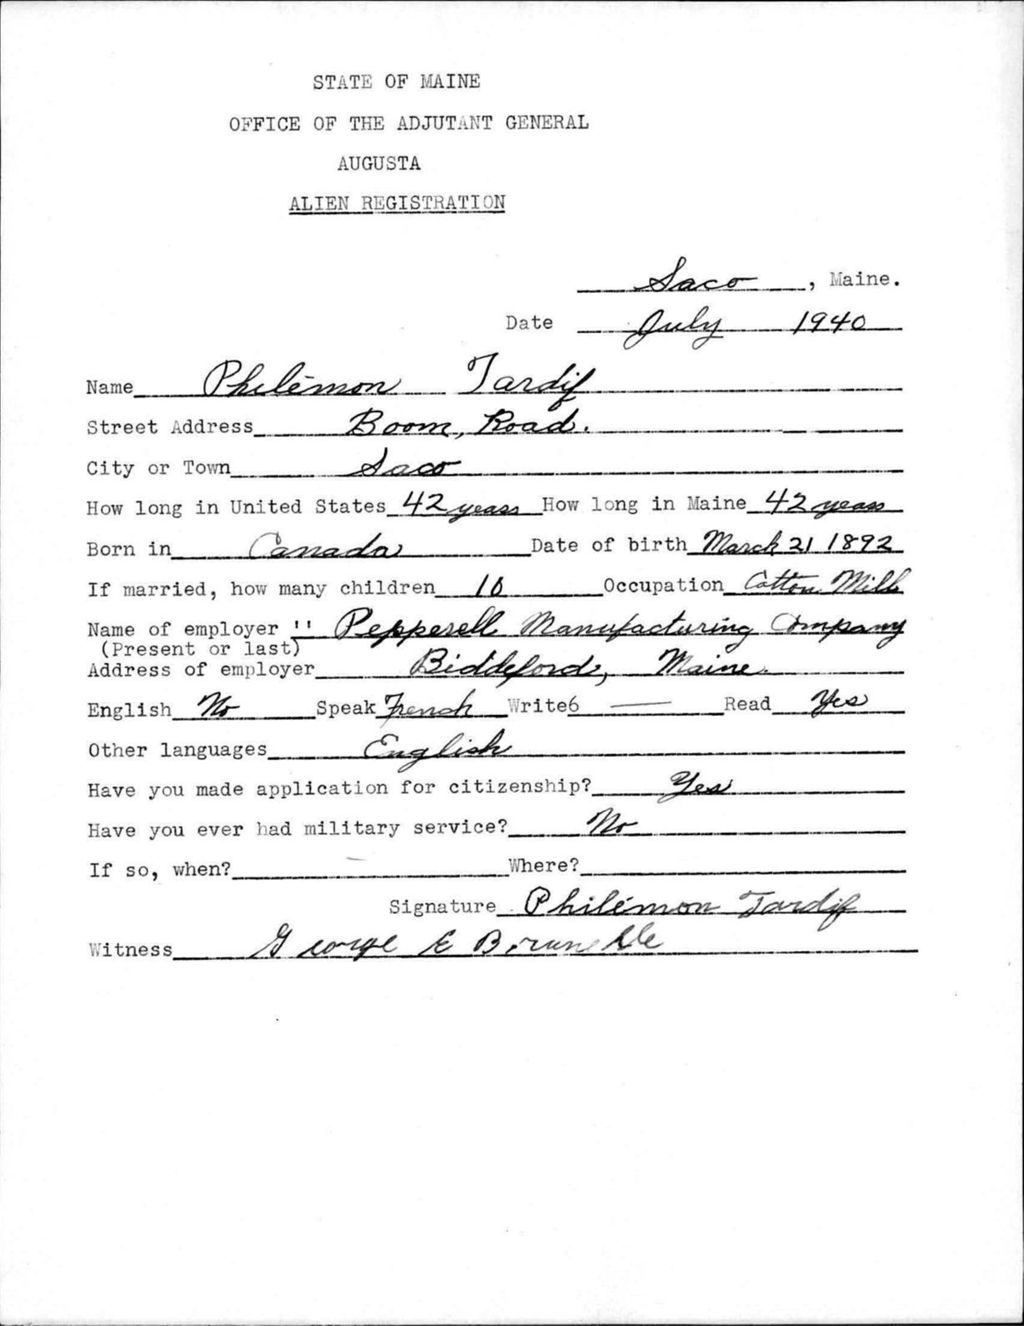 STATE OF MAINE
OFFICE OF THE ADJUTANT GENERAL
AUGUSTA
ALIEN REGISTRATION
Saco, Maine.
Date July 1940
Name Philémon Tardif
Street Address Boom, Road.
City or Town Saco
How long in United States 42 years How long in Maine 42 years
Born in Canada Date of birth March 21 1892
If married, how many children 10 Occupation Cotton Mill
Name of employer " Pepperell Manufacturing Company
(Present or last)
Address of employer Biddeford, Maine.
English No Speak French Write6 — Read Yes
Other languages English
Have you made application for citizenship? Yes
Have you ever had military service? No
If so, when? — Where?
Signature Philémon Tardif
Witness George E Brunelle